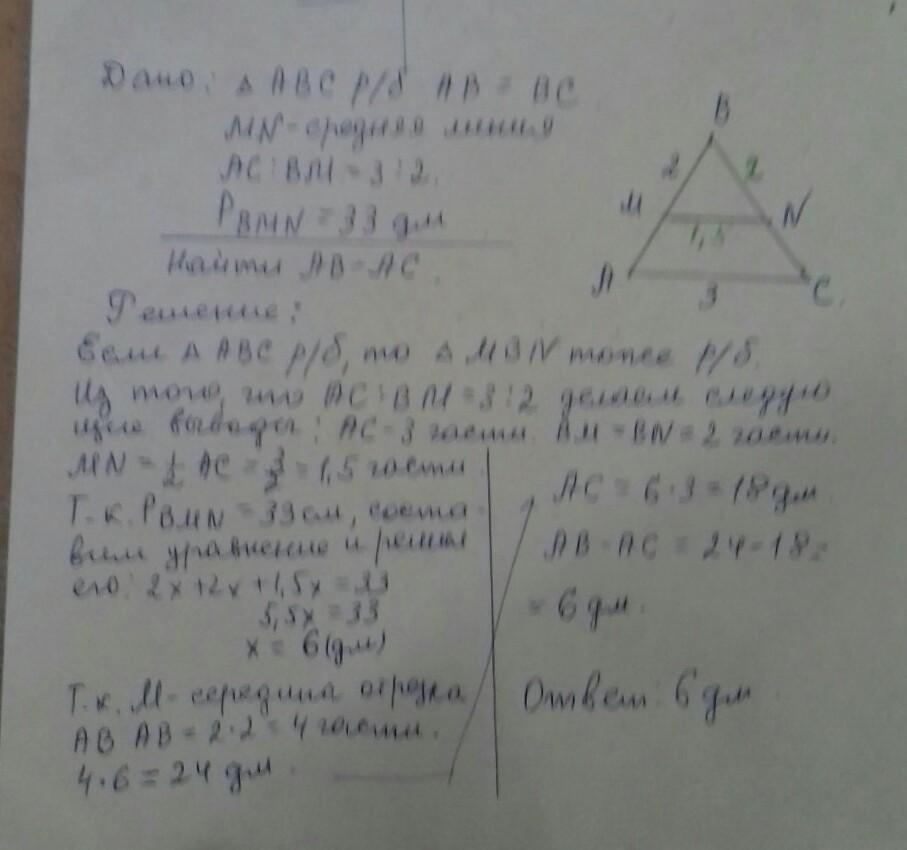 Дано: △ ABC р/б AB = BC
MN - средняя линия
AC : BM = 3 : 2.
P BMN = 33 дм
Найти AB - AC.
B
2
2
M
N
1,5
A
3
C.
Решение:
Если △ ABC р/б, то △ MBN тоже р/б.
Из того, что AC : BM = 3 : 2 делаем следую
щие выводы: AC = 3 части. BM = BN = 2 части.
MN = 1/2 AC = 3/2 = 1,5 части.
Т.к. P BMN = 33 см, соста-
вим уравнение и решим
его: 2x + 2x + 1,5x = 33
5,5x = 33
x = 6 (дм)
Т.к. M - середина отрезка
AB AB = 2·2 = 4 части.
4·6 = 24 дм.
AC = 6·3 = 18 дм
AB - AC = 24 - 18 =
= 6 дм.
Ответ: 6 дм